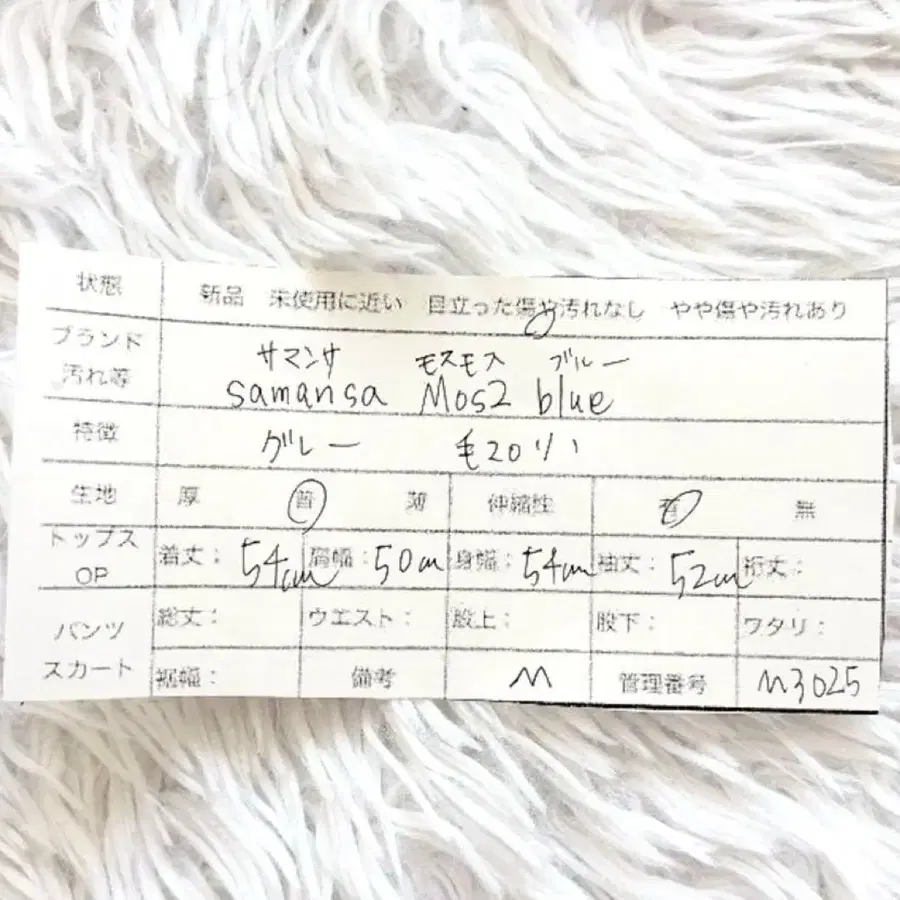 状態 新品 未使用に近い 目立った傷や汚れなし やや傷や汚れあり
ブランド サマンサ モスモス ブルー
汚れ等 samansa Mos2 blue
特徴 グレー 毛20リハ
生地 厚 普 薄 伸縮性 有 無
トップス
OP 着丈: 54cm 肩幅: 50cm 身幅: 54cm 袖丈: 52cm 裄丈:
パンツ 総丈: ウエスト: 股上: 股下: ワタリ:
スカート 裾幅: 備考 M 管理番号 M3025